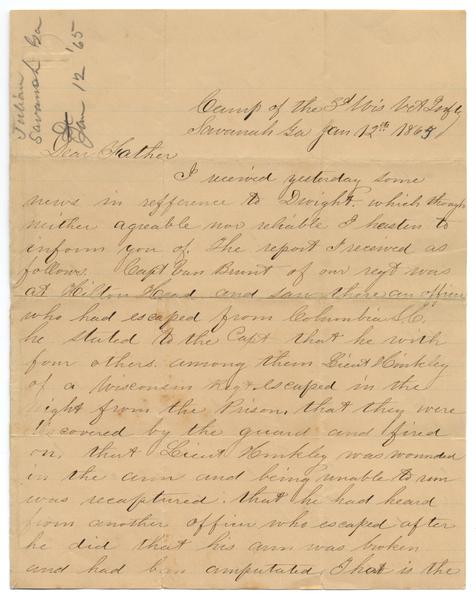 Julian
Savanah Ga
Jan 12 '65
Camp of the 3d Wis Vet Infty
Savanah Ga Jan 12th 1865
Dear Father
I received yesterday some
news in refference to Dwight. which though
neither agreable nor reliable I hasten to
inform you of. The report I received as
follows. Capt Van Brunt of our regt was
at Hilton Head and saw there an officer
who had escaped from Columbia S.C.
he stated to the Capt that he with
four others. among them Lieut Hinkley
of a Wisconsin Regt. escaped in the
night from the Prison, that they were
discovered by the guard and fired
on, that Lieut Hinkley was wounded
in the arm and being unable to run
was recaptured. that he had heard
from another officer who escaped after
he did that his arm was broken
and had ben amputated. That is the